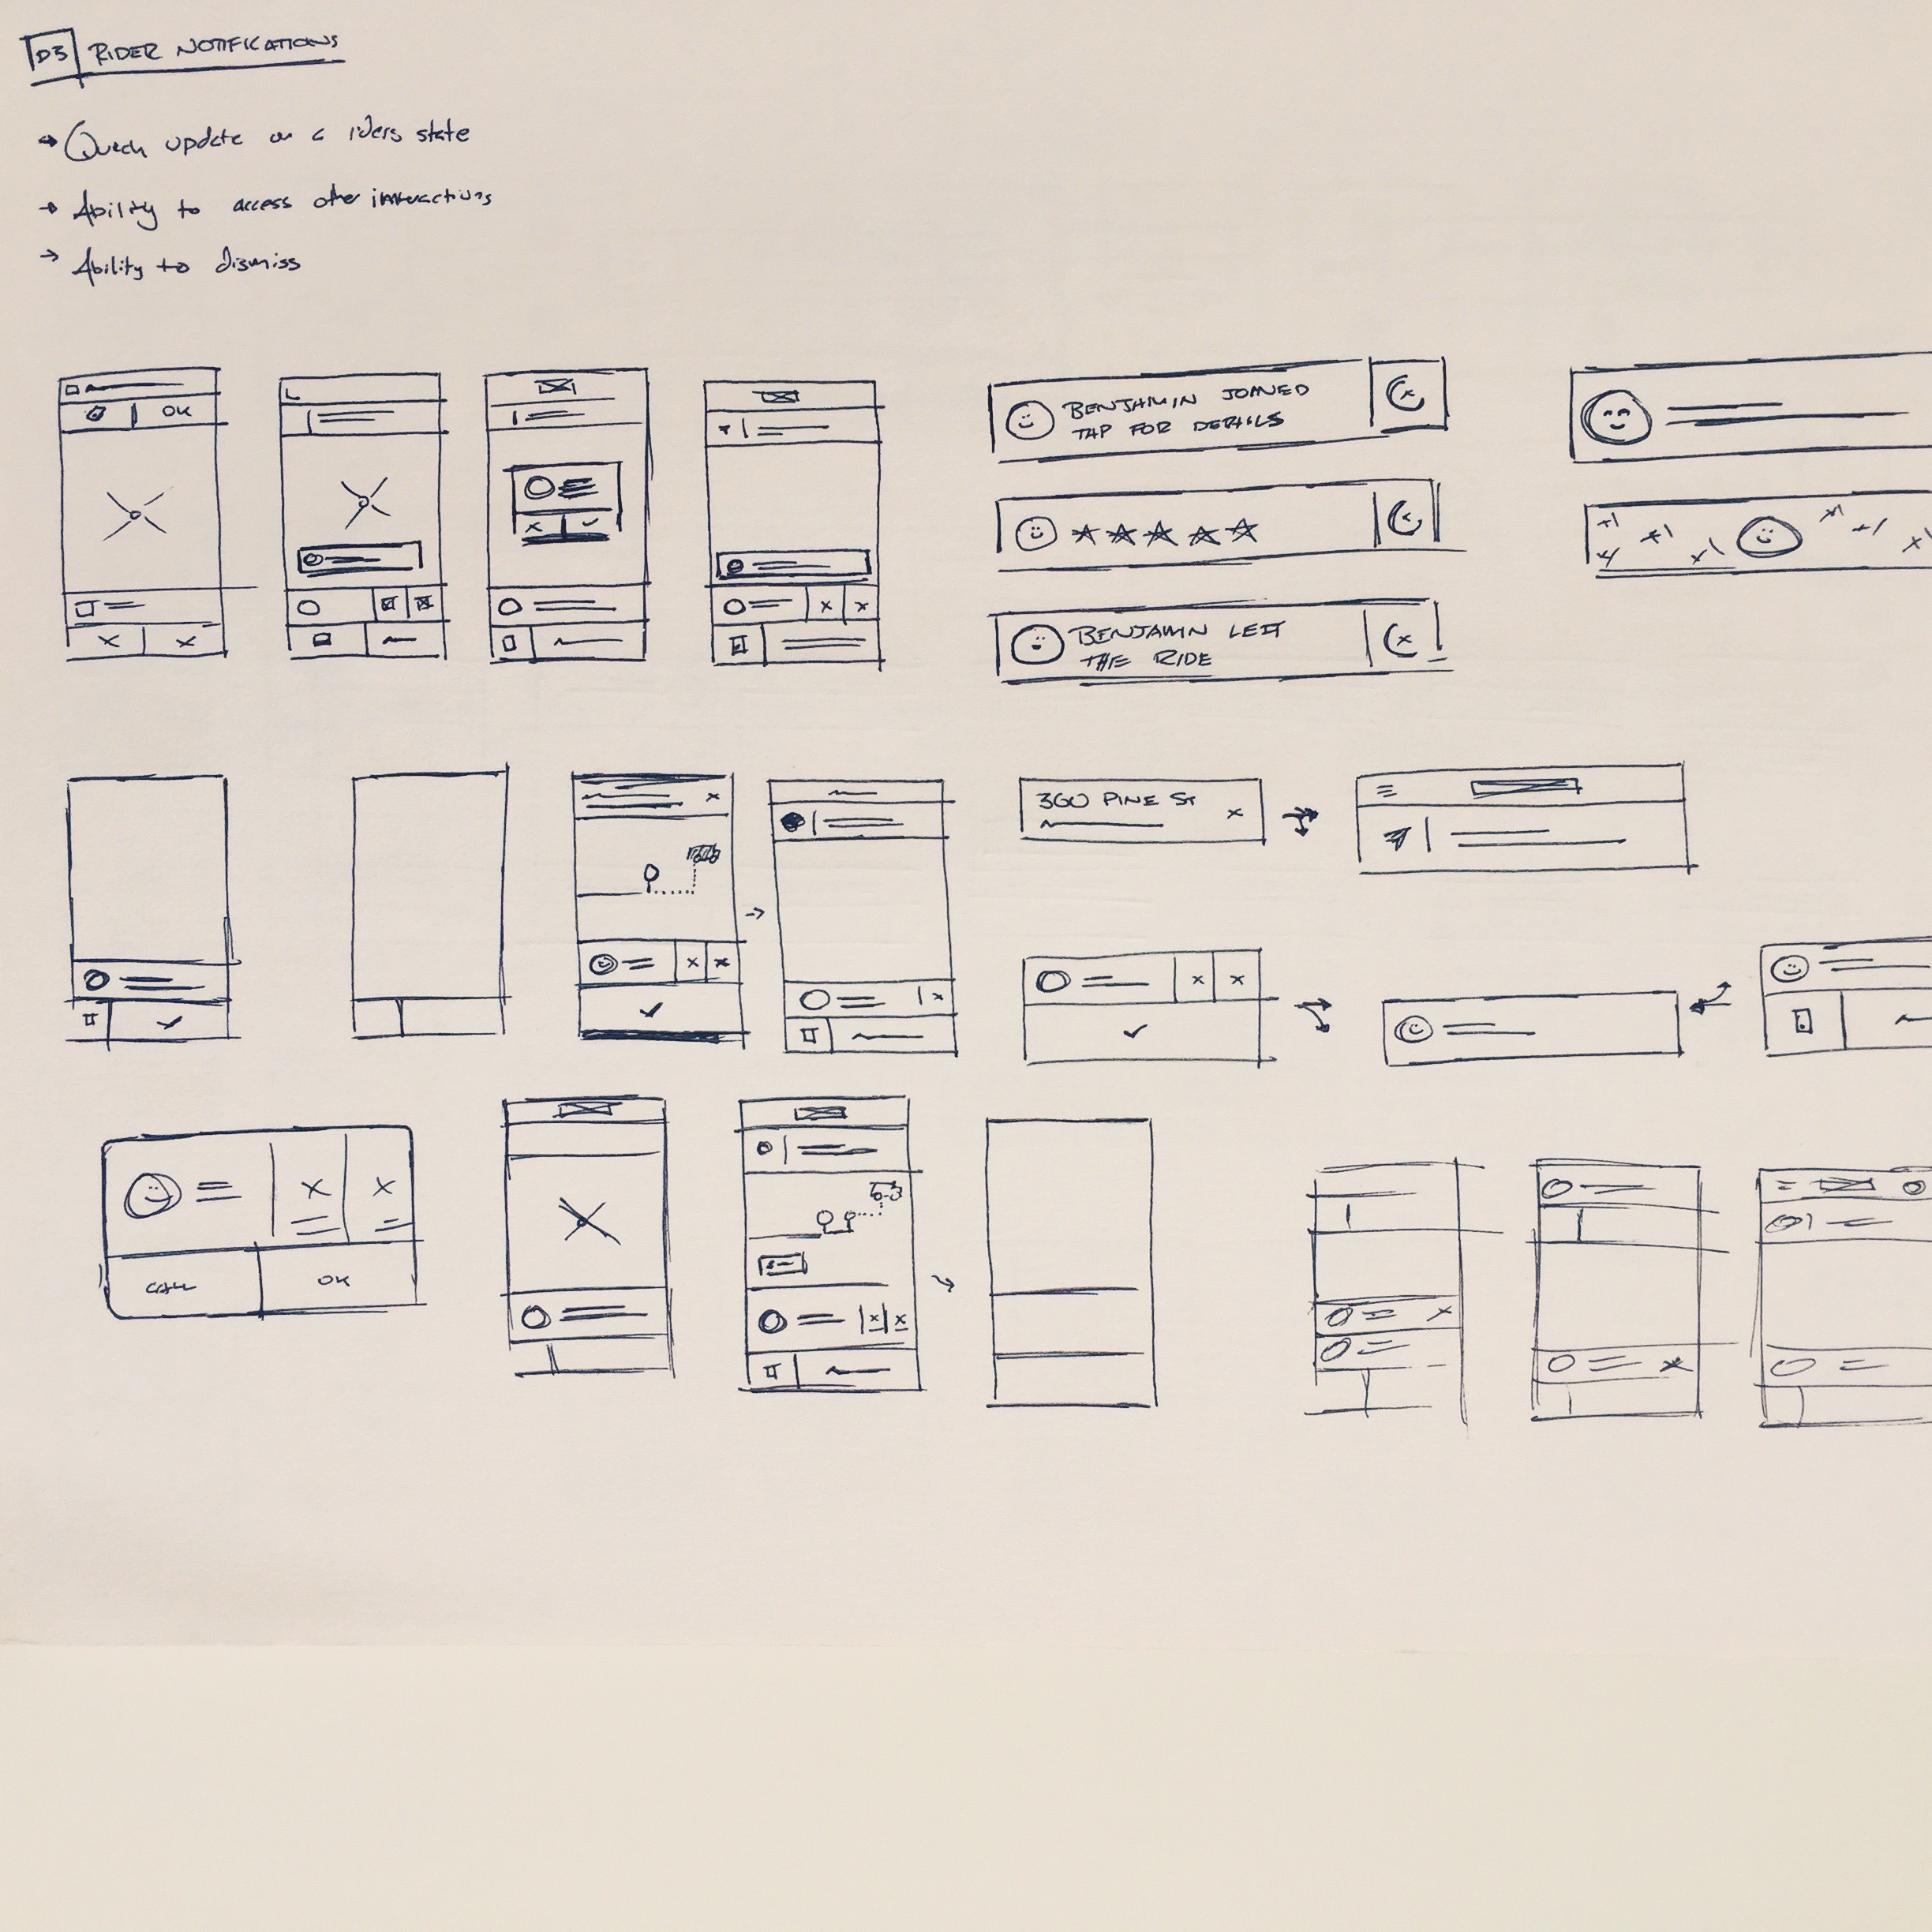 D3 RIDER NOTIFICATIONS
→ Quick update on a riders state
→ Ability to access other interactions
→ Ability to dismiss
OK
BENJAMIN JOINED
TAP FOR DETAILS
BENJAMIN LEFT
THE RIDE
360 PINE ST
CALL
OK